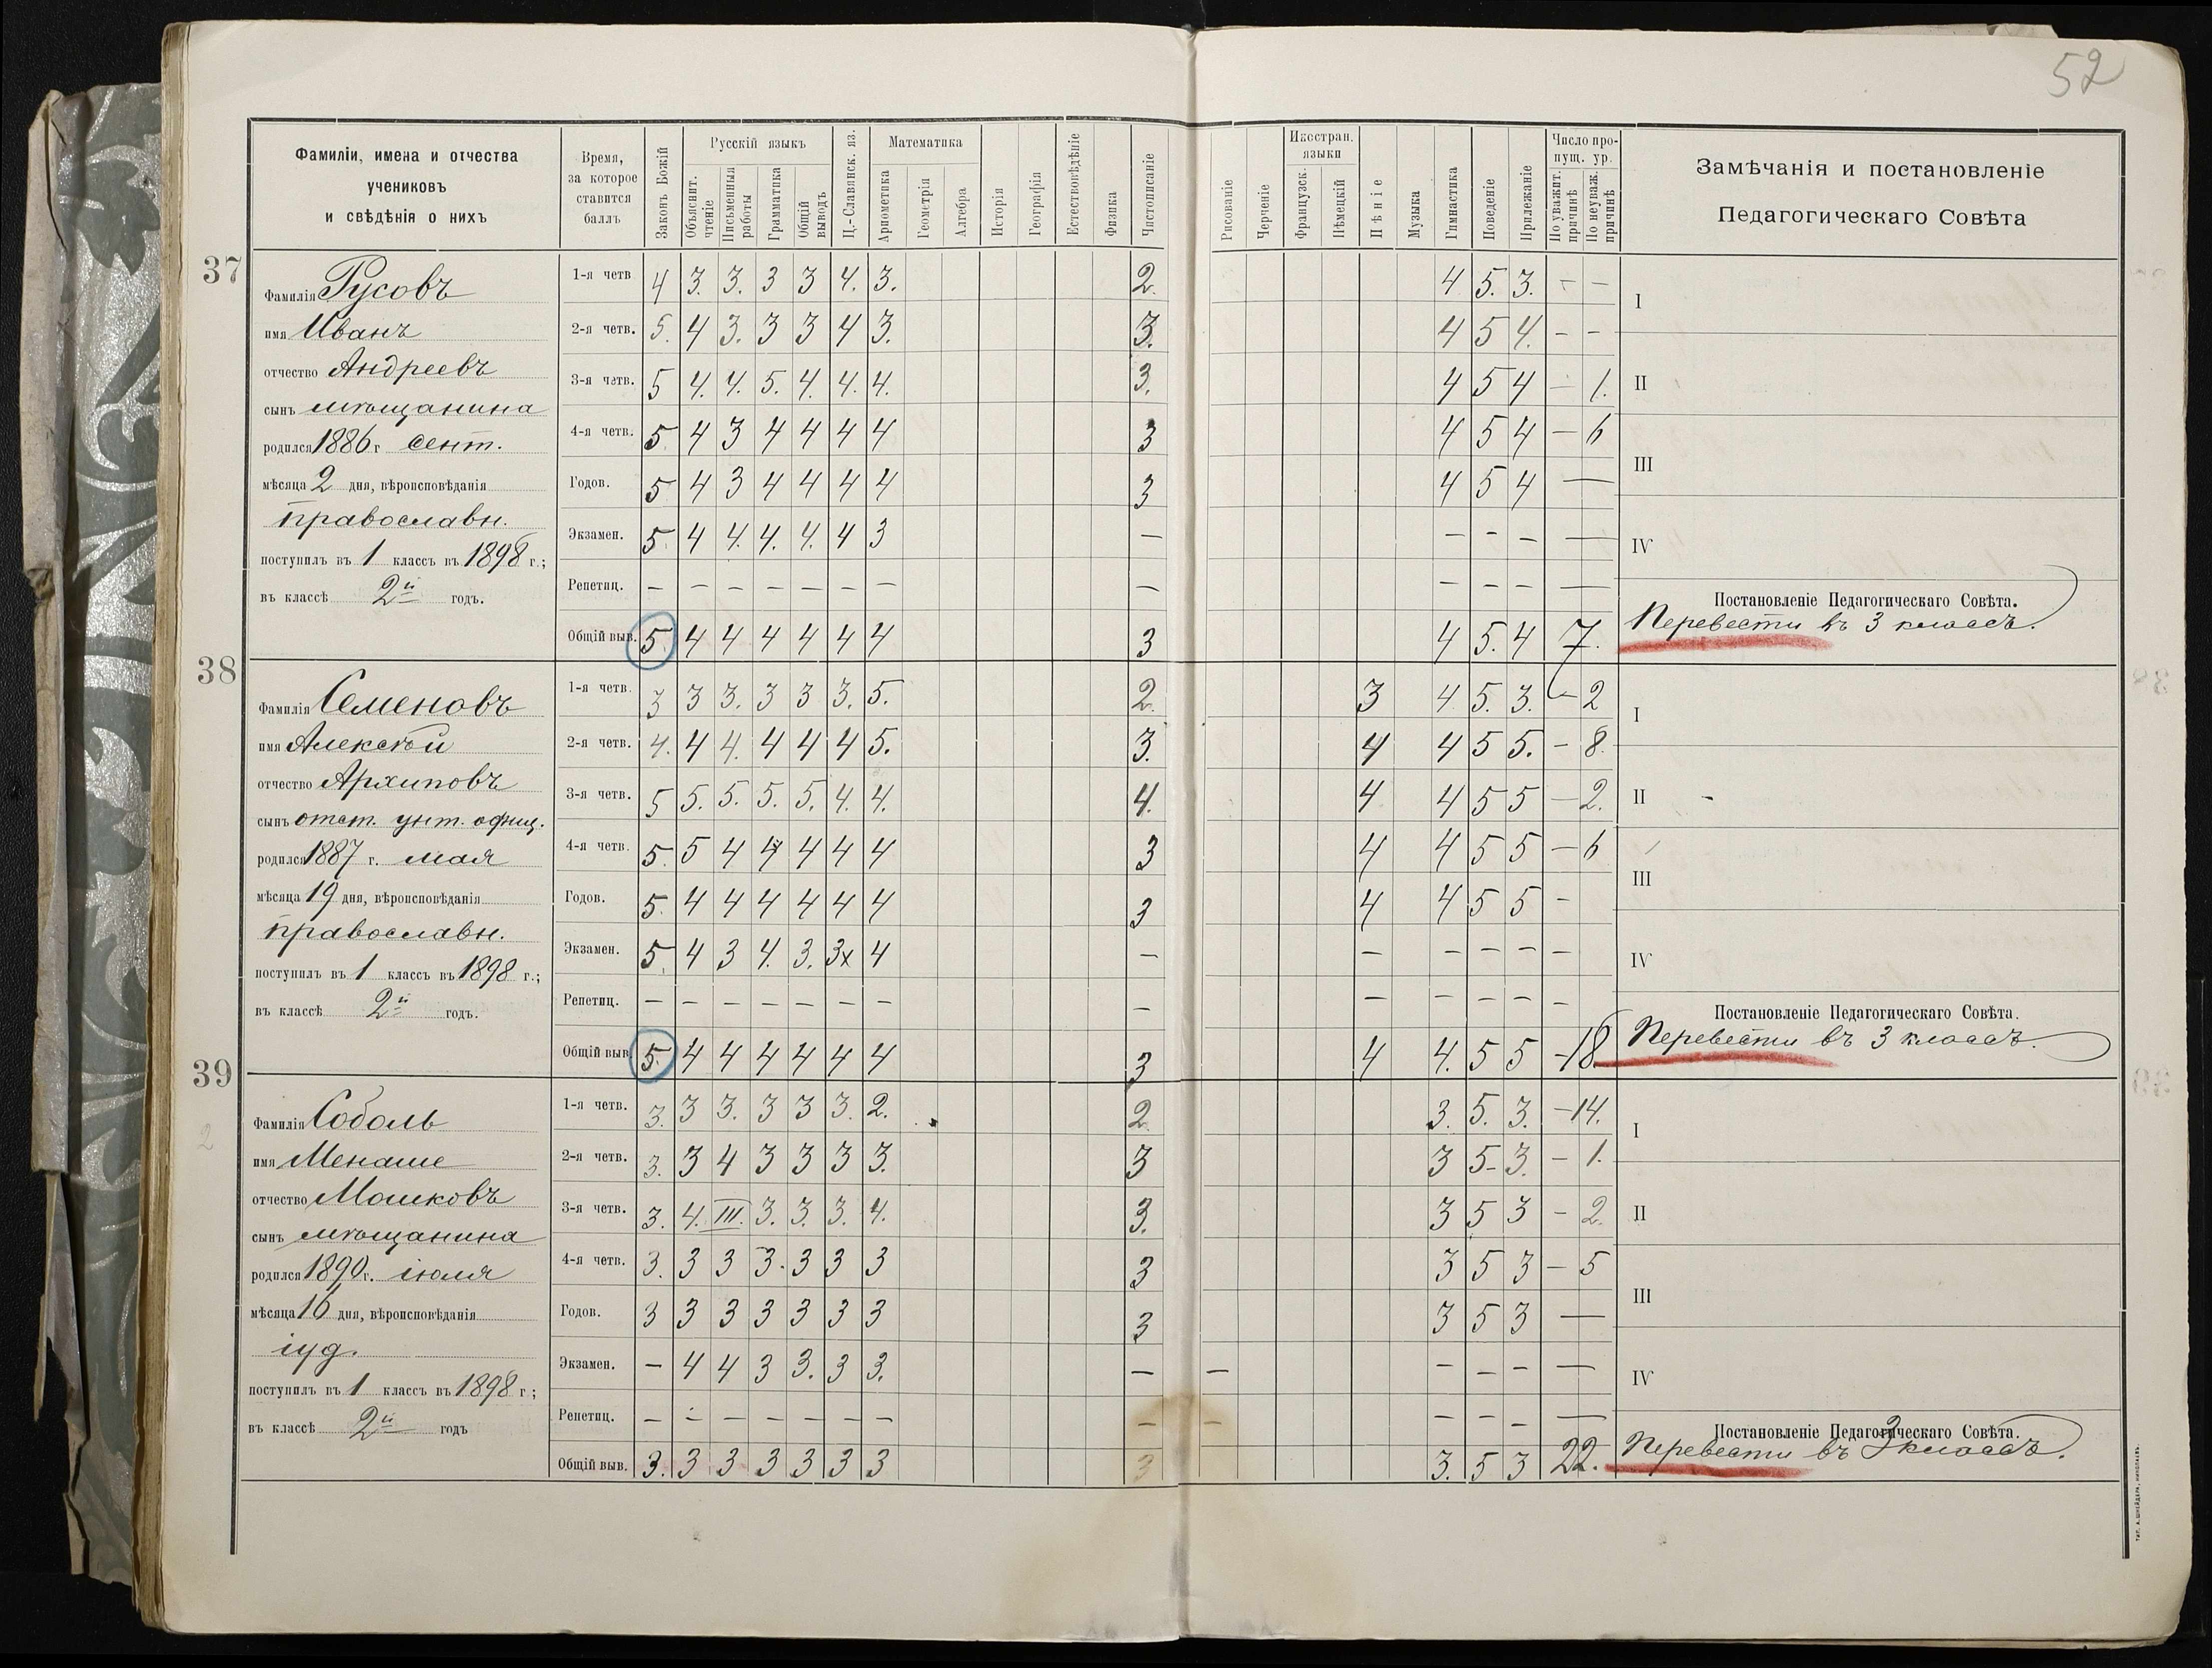 52
Фамиліи, имена и отчества
учениковъ
и свѣдѣнія о нихъ
Время,
за которое
ставится
баллъ
Законъ Божій
Русскій языкъ
Объяснит. чтеніе
Письменныя работы
Грамматика
Общій выводъ
Ц.-Славянск. яз.
Математика
Ариѳметика
Геометрія
Алгебра
Исторія
Географія
Естествовѣдѣніе
Физика
Чистописаніе
Рисованіе
Черченіе
Иностран. языки
Французск.
Нѣмецкій
Пѣніе
Музыка
Гимнастика
Поведеніе
Прилежаніе
Число пропущ. ур.
По уважит. причинѣ
По неуваж. причинѣ
Замѣчанія и постановленіе
Педагогическаго Совѣта
37
Фамилія Русовъ
имя Иванъ
отчество Андреевъ
сынъ мѣщанина
родился 1886 г. сент.
мѣсяца 2 дня, вѣроисповѣданія
православн.
поступилъ въ 1 классъ въ 1898 г.;
въ классѣ 2й годъ.
1-я четв 4 3. 3. 3 3 4. 3. 2. 4 5. 3. – –
2-я четв. 5. 4 3. 3 3 4 3. 3. 4 5 4. – –
3-я четв. 5 4. 4. 5. 4. 4. 4. 3. 4 5 4 – 1.
4-я четв. 5 4 3 4 4 4 4 3 4 5 4 – 6
Годов. 5 4 3 4 4 4 4 3 4 5 4 —
Экзамен. 5. 4 4. 4. 4. 4 3 — – – – —
Репетиц. – – – – – – – — – – – —
Общій выв. 5. 4 4 4 4 4 4 3 4 5. 4 7.
I
II
III
IV
Постановленіе Педагогическаго Совѣта.
Перевести въ 3 классъ.
38
Фамилія Семеновъ
имя Алексѣй
отчество Архиповъ
сынъ отст. унт. офиц.
родился 1887 г. мая
мѣсяца 19 дня, вѣроисповѣданія
православн.
поступилъ въ 1 классъ въ 1898 г.;
въ классѣ 2й годъ.
1-я четв. 3 3 3. 3 3 3. 5. 2. 3 4 5. 3. – 2
2-я четв. 4. 4 4. 4 4 4 5. 3. 4 4 5 5. – 8.
3-я четв. 5 5. 5. 5. 5. 4. 4. 4. 4 4 5 5 – 2.
4-я четв. 5. 5 4 4 4 4 4 3 4 4 5 5 – 6
Годов. 5. 4 4 4 4 4 4 3 4 4 5 5 –
Экзамен. 5. 4 3 4. 3. 3х 4 — — – – – –
Репетиц. – – – – – – – – – – – – –
Общій выв 5. 4 4 4 4 4 4 3 4 4. 5 5 –18
I
II
III
IV
Постановленіе Педагогическаго Совѣта.
Перевести въ 3 классъ.
39
Фамилія Соболь
имя Менаше
отчество Мошковъ
сынъ мѣщанина
родился 1890 г. іюля
мѣсяца 16 дня, вѣроисповѣданія
іуд.
поступилъ въ 1 классъ въ 1898 г;
въ классѣ 2й годъ
1-я четв. 3. 3 3. 3 3 3. 2. 2. 3. 5. 3. – 14.
2-я четв. 3. 3 4 3 3 3 3. 3 3 5- 3. – 1.
3-я четв. 3. 4. III. 3. 3. 3. 4. 3. 3 5 3 – 2.
4-я четв. 3. 3 3 3. 3 3 3 3 3 5 3 – 5
Годов. 3 3 3 3 3 3 3 3 3 5 3 —
Экзамен. – 4 4 3 3. 3 3. — — – – – —
Репетиц. – – – – – – – – – – – – —
Общій выв. 3. 3 3 3 3 3 3 3 3. 5 3 22.
I
II
III
IV
Постановленіе Педагогическаго Совѣта.
Перевести въ 3 классъ.
ТИП. А. ШНЕЙДЕРА, НИКОЛАЕВЪ.